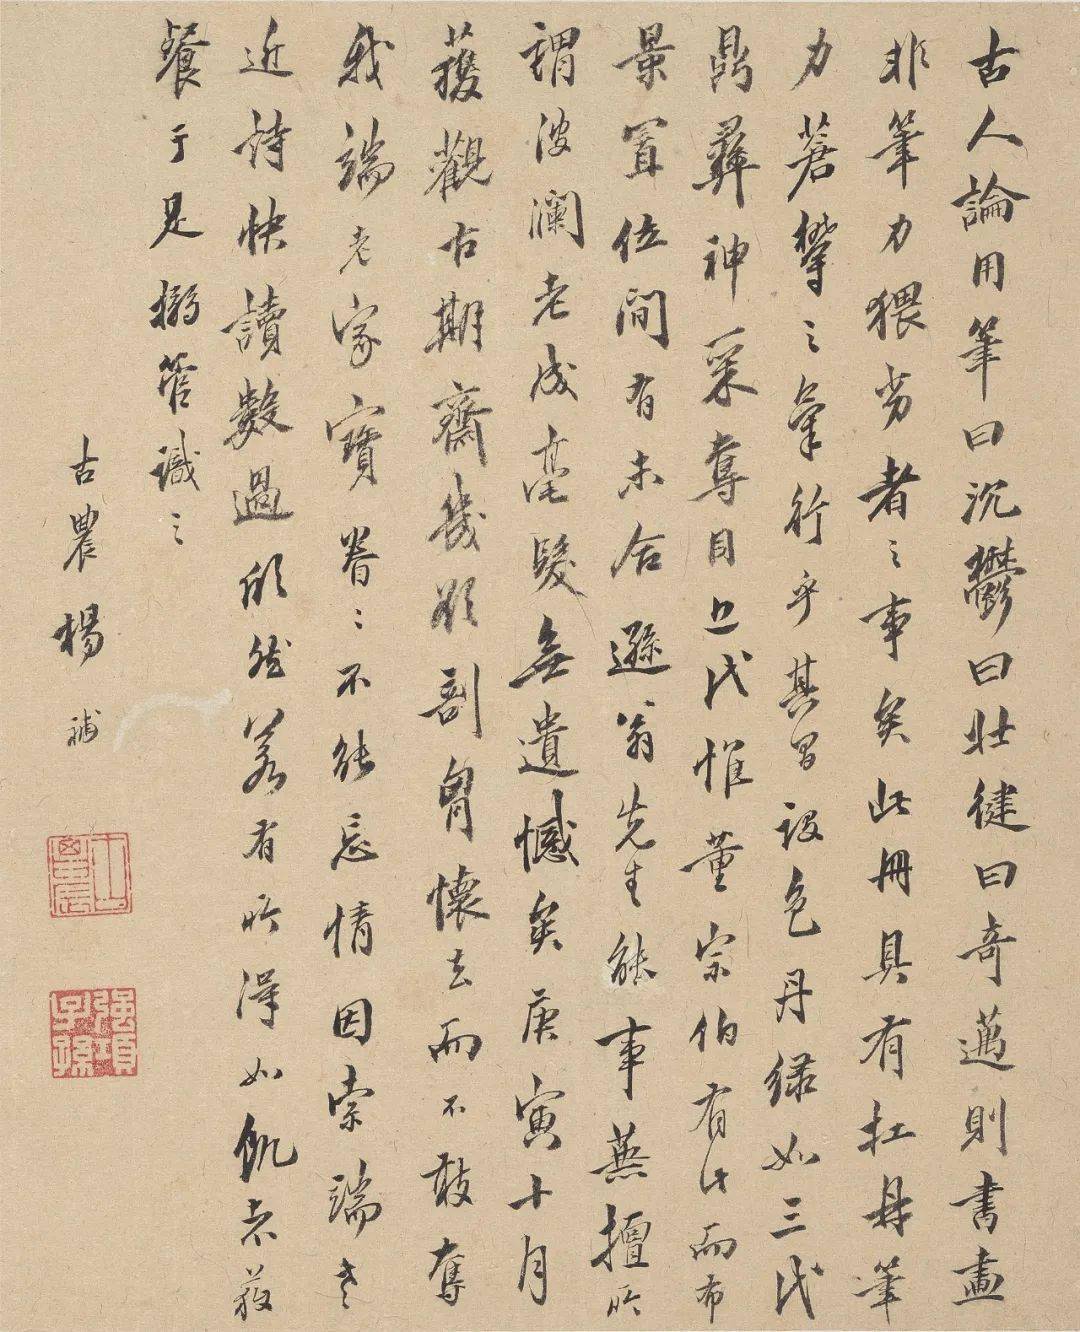 古人論用筆曰沉鬱曰壯健曰奇邁則書畫
非筆力猥劣者之事矣此冊具有扛鼎筆
力蒼鬱之氣行乎其間設色丹綠如三代
鼎彝神采奪目近代惟董宗伯有此而布
景置位間有未合遜翁先生能事蕪擅所
謂波瀾老成毫髮無遺憾矣庚寅十月
獲觀古期齋幾欲剖胷懷去而不敢奪
我端老家寶眷眷不能忘情因索端老
近詩快讀數過欣然若有所得如飢者獲
餐于是搦管識之
古農楊補